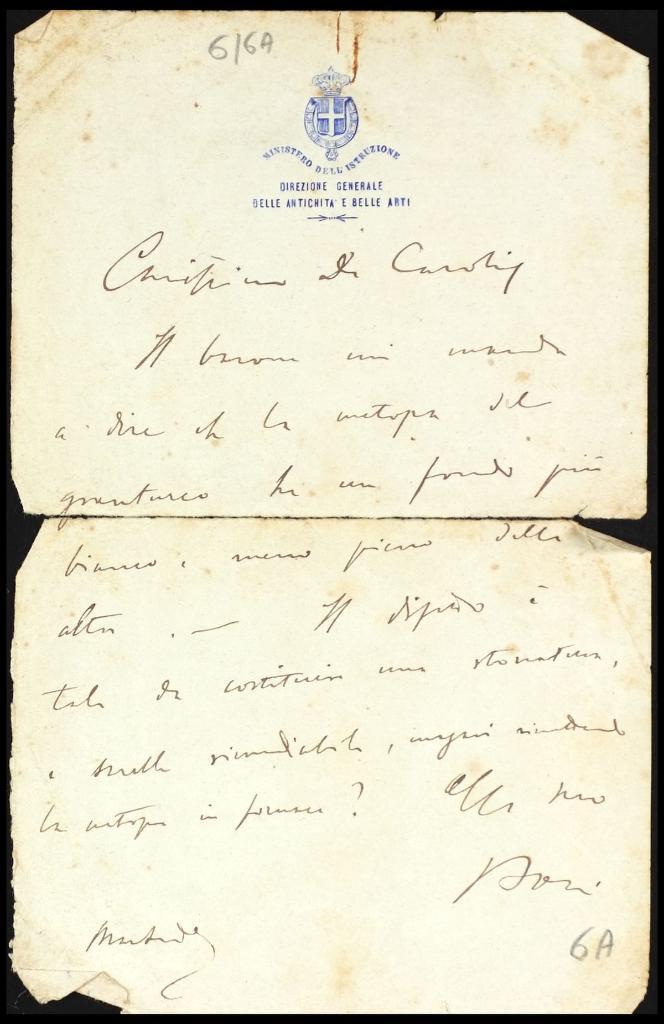 6/6A
MINISTERO DELL'ISTRUZIONE
DIREZIONE GENERALE
DELLE ANTICHITA E BELLE ARTI
Carissimo De Carolis
Il barone mi manda
a dire che la metopa del
granturco ha un fondo più
bianco e meno pieno delle
altre. — Il dispetto è
tale da costituire una stonatura,
e sarebbe rimediabile, magari rimettendo
la metopa in fornace? Aff. suo
6A